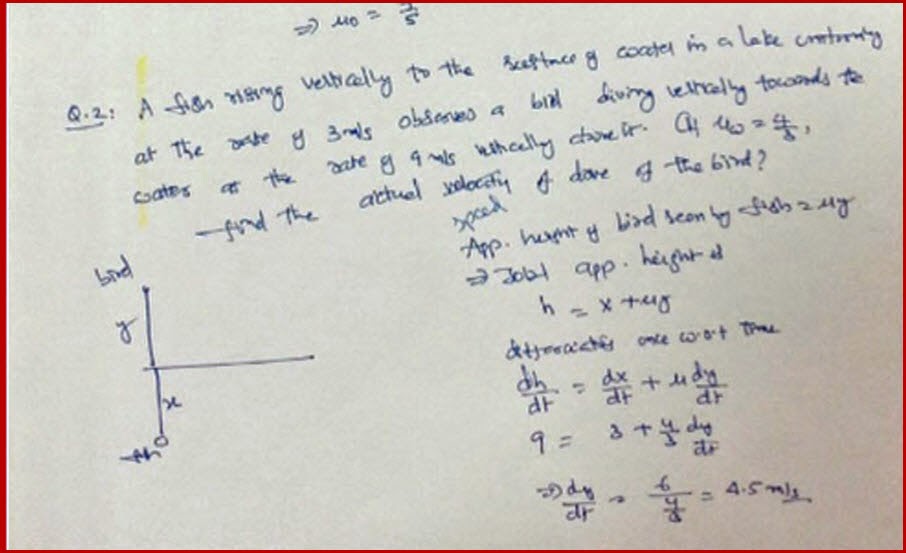 ⇒ μ0 = 7/5
Q.2: A fish rising vertically to the surface of water in a lake uniformly
at the rate of 3 m/s observes a bird diving vertically towards the
water at the rate of 9 m/s vertically above it. If μw = 4/3,
find the actual velocity of dive of the bird?
speed
App. height of bird seen by fish = μy
⇒ Total app. height is
h = x + μy
differentiating once w.r.t time
dh/dt = dx/dt + μ dy/dt
9 = 3 + 4/3 dy/dt
⇒ dy/dt = 6/(4/3) = 4.5 m/s
bird
y
x
fish